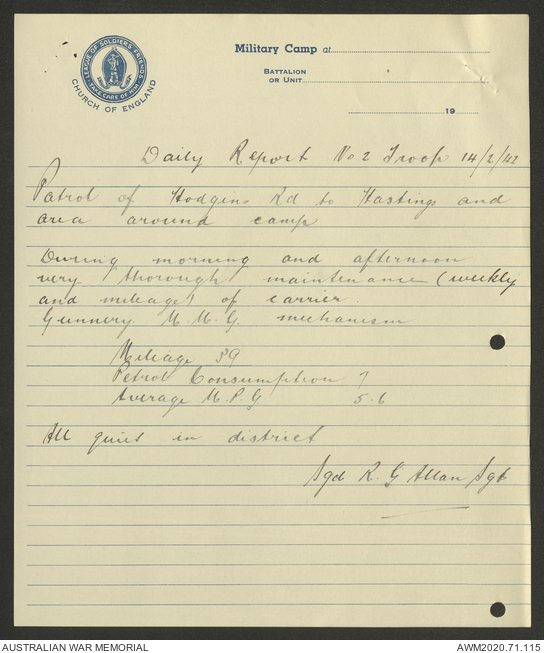 LEAGUE OF SOLDIERS' FRIENDS
TAKE CARE OF HIM
CHURCH OF ENGLAND
Military Camp at
BATTALION
OR UNIT
19
Daily Report No 2 Troop 14/2/42
Patrol of Hodgens Rd to Hastings and
area around camp
During morning and afternoon
very thorough maintenance (weekly
and mileage) of carrier.
Gunnery M.M.G. mechanism
Mileage 39
Petrol Consumption 7
Average M.P.G 5.6
All quiet in district
Sgd R. G Allan Sgt
AUSTRALIAN WAR MEMORIAL
AWM2020.71.115